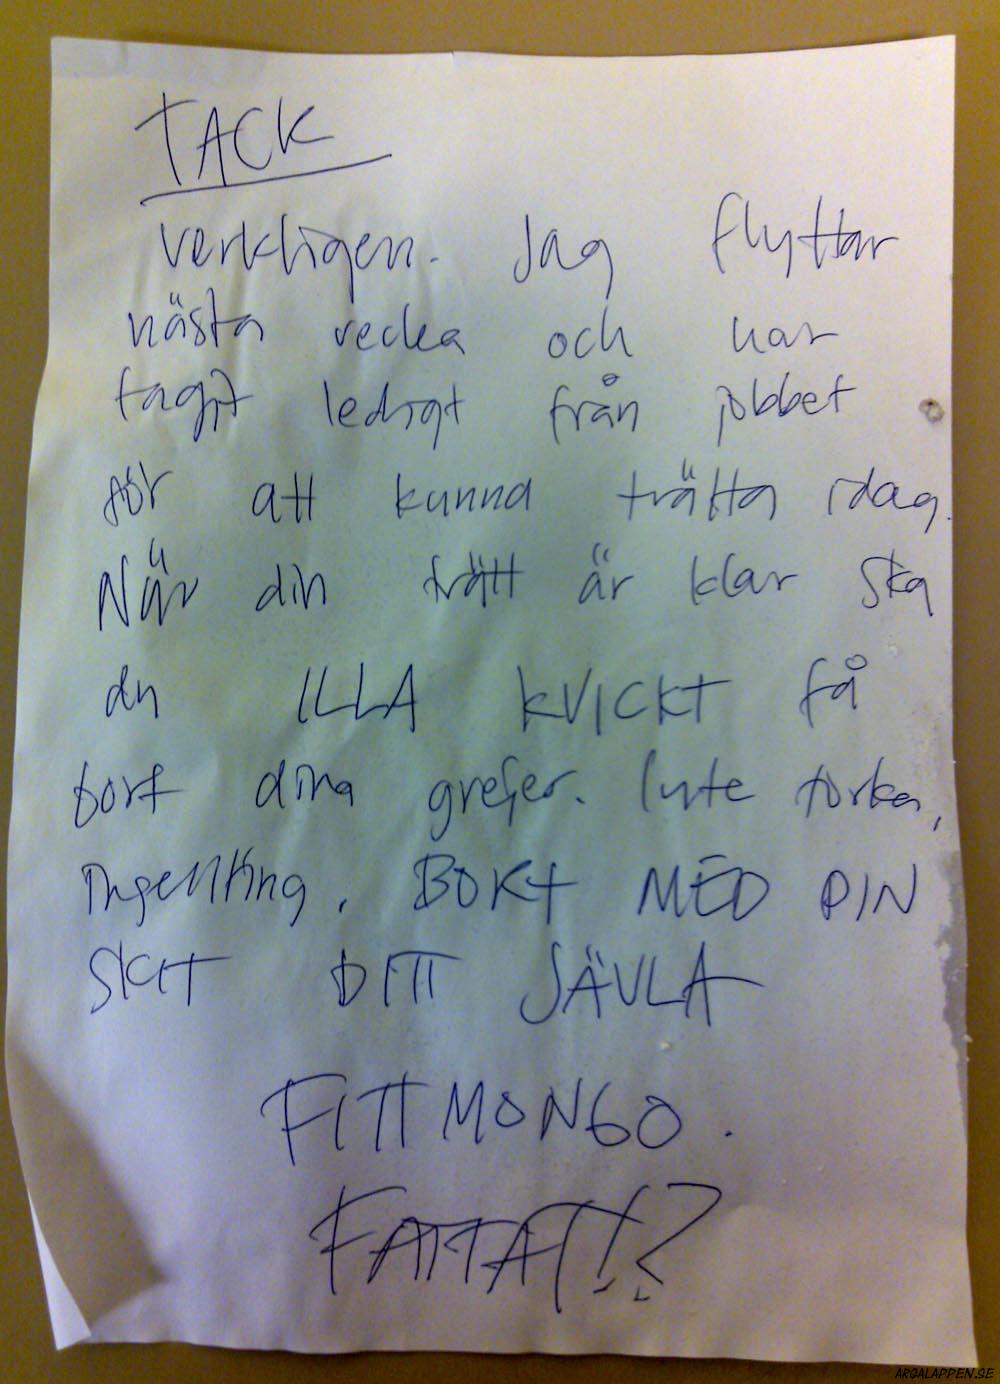 TACK
verkligen. Jag flyttar
nästa vecka och har
tagit ledigt från jobbet
för att kunna tvätta idag.
När din tvätt är klar ska
du ILLA KVICKT få
bort dina grejer. Inte torka,
ingenting. BORT MED DIN
SKIT DITT JÄVLA
FITTMONGO.
FATTAT!?
ARGALAPPEN.SE